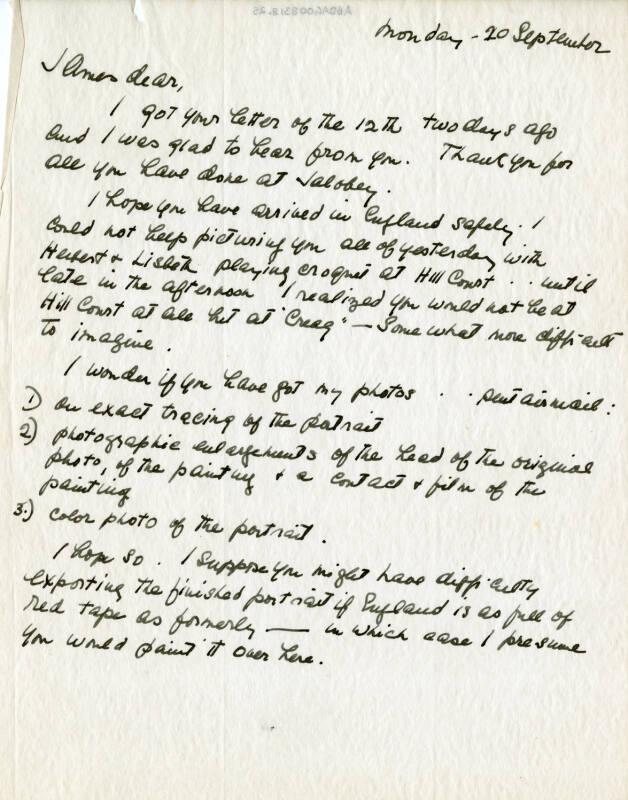 Monday - 20 September
James dear,
I got your letter of the 12th two days ago
and I was glad to hear from you. Thank you for
all you have done at Jalobey.
I hope you have arrived in England safely. I
could not help picturing you all of yesterday with
Herbert & Lisbeth playing croquet at Hill Court . . until
late in the afternoon I realized you would not be at
Hill Court at all but at "Creag" — Somewhat more difficult
to imagine.
I wonder if you have got my photos . . sent airmail:
1) an exact tracing of the portrait
2) photographic enlargements of the head of the original
photo, of the painting & a contact & film of the
painting
3.) color photo of the portrait.
I hope so. I suppose you might have difficulty
exporting the finished portrait if England is as full of
red tape as formerly — in which case I presume
you would paint it over here.